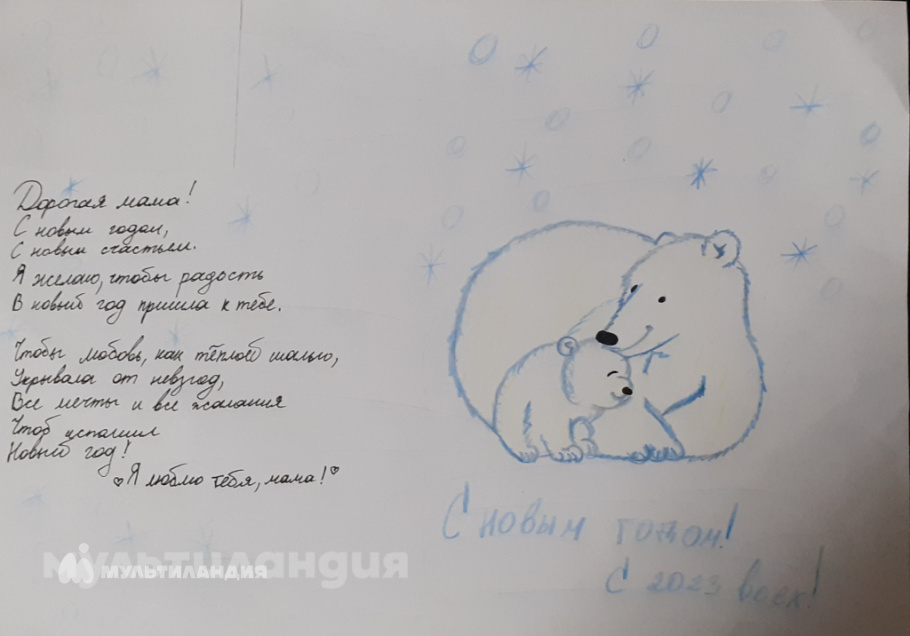 Дорогая мама!
С новым годом,
С новым счастьем.
Я желаю, чтобы радость
В новый год пришла к тебе.
Чтобы любовь, как тёплой шалью,
Укрывала от невзгод,
Все мечты и все желания
Чтоб исполнил
Новый год!
Я люблю тебя, мама!
С новым годом!
С 2023 всех!
МУЛЬТИЛАНДИЯ
МУЛЬТИЛАНДИЯ